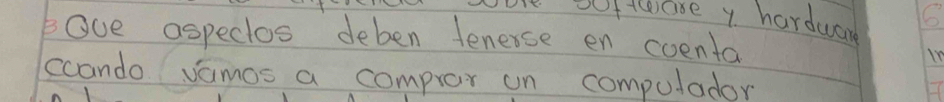 software y hardware
3 Que aspectos deben tenerse en cuenta
cuando vamos a comprar un computador